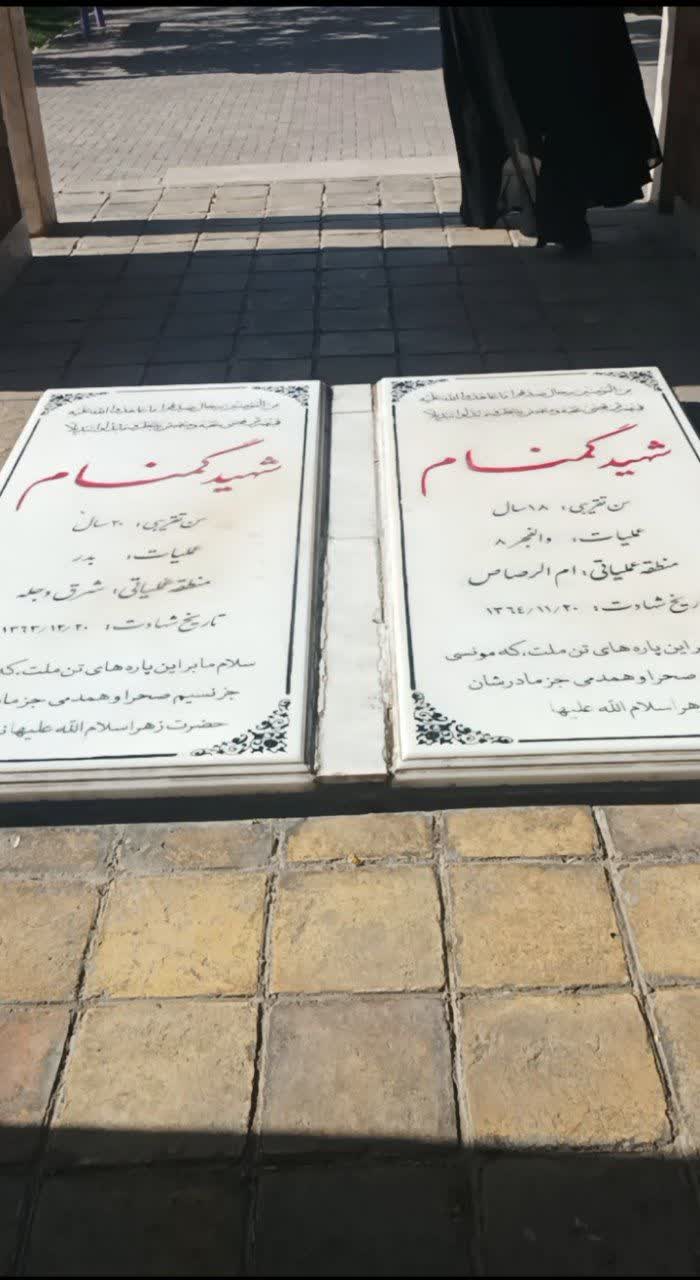 من المومنین رجال صدقوا ما عاهدوا الله علیه
فمنهم من قضی نحبه و منهم من ینتظر و ما بدلوا تبدیلا
شهید گمنام
سن تقریبی: ۱۸ سال
عملیات: والفجر ۸
منطقه عملیاتی: ام الرصاص
تاریخ شهادت: ۱۳۶۴/۱۱/۲۰
بر این پاره های تن ملت، که مونسی
صحرا و همدمی جز مادرشان
زهرا سلام الله علیها
من المومنین رجال صدقوا ما عاهدوا الله علیه
فمنهم من قضی نحبه و منهم من ینتظر و ما بدلوا تبدیلا
شهید گمنام
سن تقریبی: ۲۰ سال
عملیات: بدر
منطقه عملیاتی: شرق دجله
تاریخ شهادت: ۱۳۶۳/۱۲/۲۰
سلام ما بر این پاره های تن ملت، که
جز نسیم صحرا و همدمی جز
حضرت زهرا سلام الله علیها